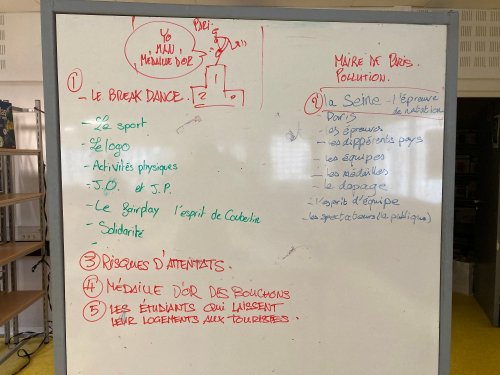 YO
MAN!
MÉDAILLE D'OR
1
2
① - LE BREAK DANCE.
- Le sport
- Le logo
- Activités physiques
- J.O. et J.P.
- Le fairplay l'esprit de Coubertin
- Solidarité
-
MAIRE DE PARIS.
POLLUTION.
② la Seine - l'épreuve
de natation
- Paris
- les épreuves
- les différents pays
- les équipes
- les médailles
- le dopage
- l'esprit d'équipe
- les spectateurs (la publique)
③ RISQUES D'ATTENTATS.
④ MÉDAILLE D'OR DES BOUCHONS
⑤ LES ÉTUDIANTS QUI LAISSENT
LEUR LOGEMENTS AUX TOURISTES.